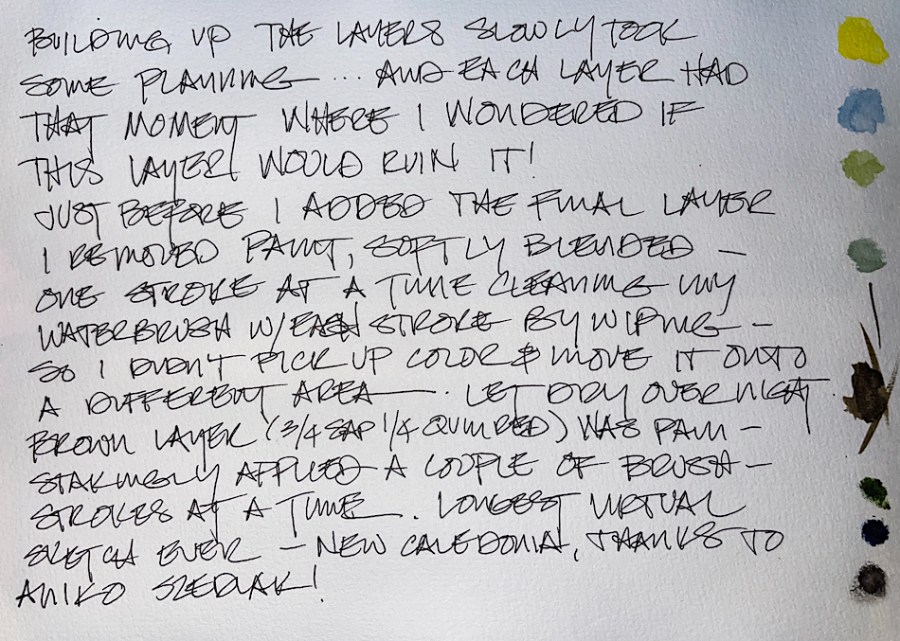 BUILDING UP THE LAYERS SLOWLY TOOK
SOME PLANNING — ... AND EACH LAYER HAD
THAT MOMENT WHERE I WONDERED IF
THIS LAYER WOULD RUIN IT!
JUST BEFORE I ADDED THE FINAL LAYER
I REMOVED PAINT, SOFTLY BLENDED —
ONE STROKE AT A TIME CLEANING MY
WATERBRUSH W/EACH STROKE BY WIPING —
SO I DIDN'T PICK UP COLOR & MOVE IT ONTO
A DIFFERENT AREA —. LET DRY OVERNIGHT
BROWN LAYER (3/4 SAP 1/4 QUIN RED) WAS PAIN –
STAKINGLY APPLIED A COUPLE OF BRUSH –
STROKES AT A TIME. LONGEST VIRTUAL
SKETCH EVER – NEW CALEDONIA, THANKS TO
ANIKO SZEDLAK!